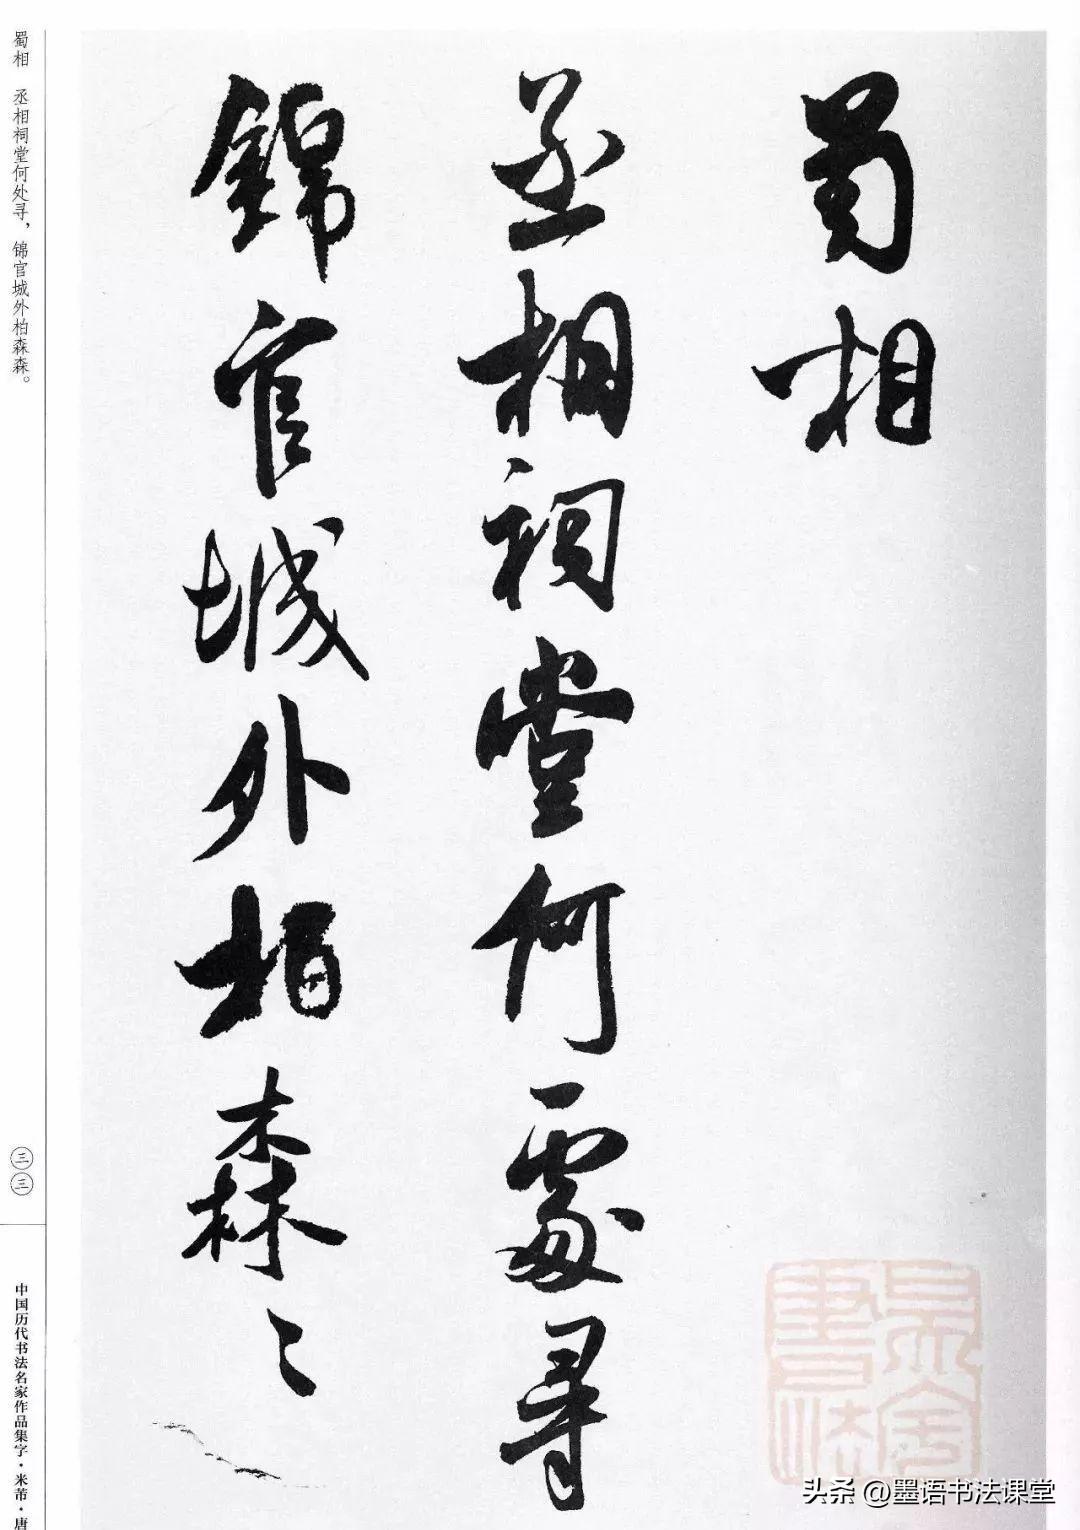 蜀相
丞相祠堂何處尋
錦官城外柏森〻
蜀相　丞相祠堂何处寻，锦官城外柏森森。
三三
中国历代书法名家作品集字·米芾·唐
头条 @墨语书法课堂